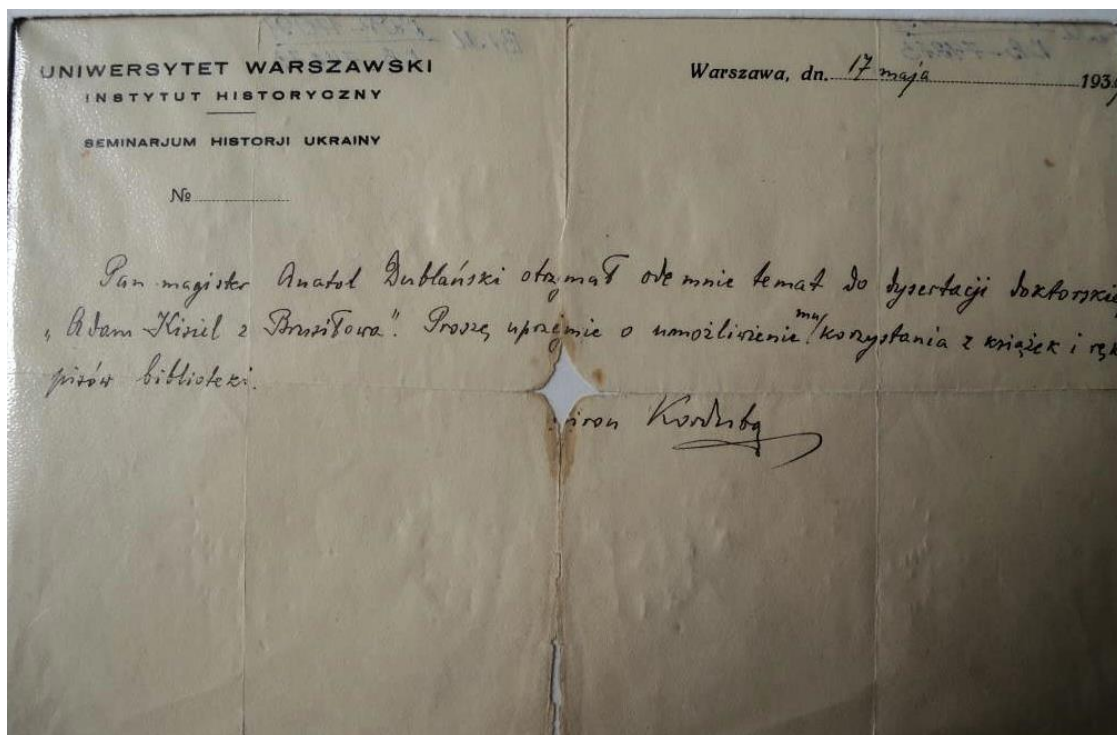 UNIWERSYTET WARSZAWSKI
INSTYTUT HISTORYCZNY
SEMINARJUM HISTORJI UKRAINY
№
Warszawa, dn. 17 maja 193
Pan magister Anatol Dublański otrzymał ode mnie temat do dysertacji doktorskie
„Adam Kisiel z Brusiłowa”. Proszę uprzejmie o umożliwienie mu korzystania z książek i ręk
pisów biblioteki.
iron Korduba